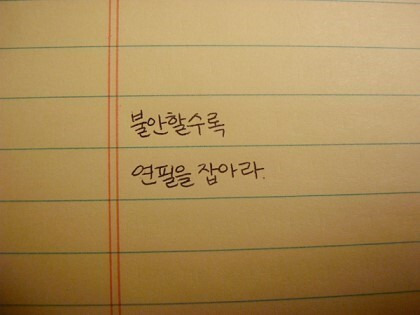 불안할수록
연필을 잡아라.